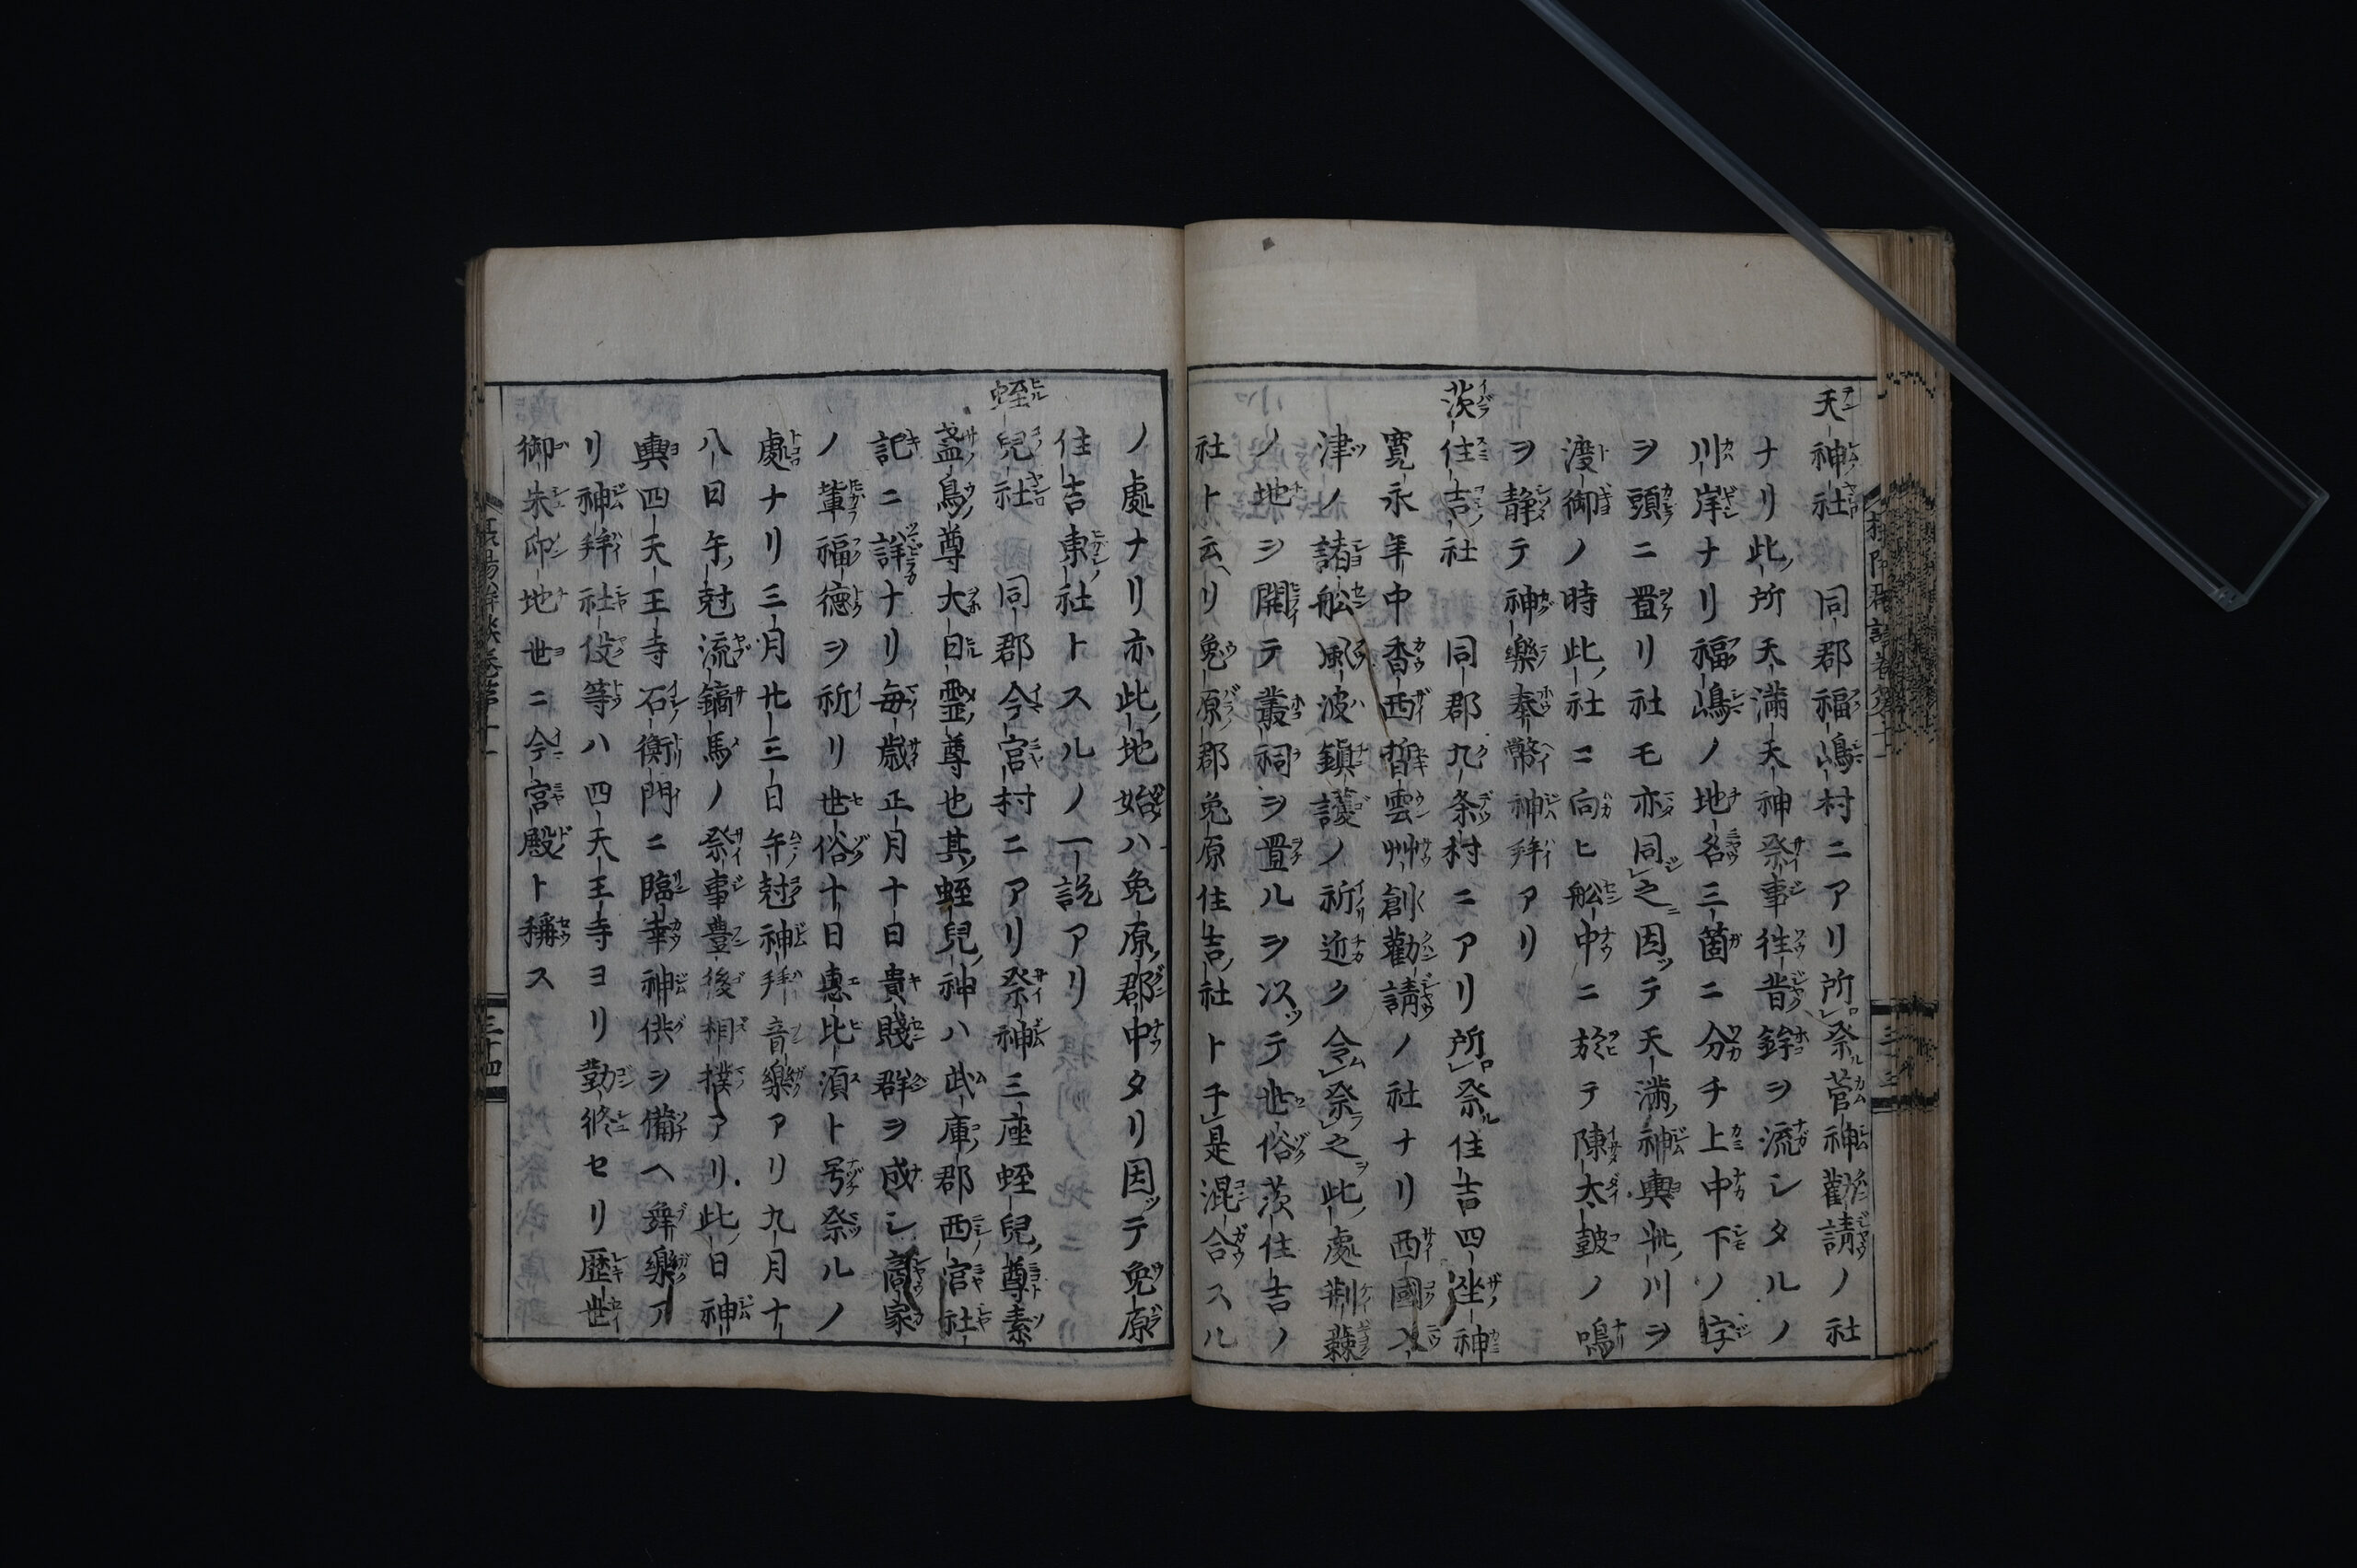 天神社 同郡福嶋村ニアリ所祭菅神勸請ノ社
ナリ此所天満天神祭事徃昔鉾ヲ流シタルノ
川岸ナリ福嶋ノ地名三箇ニ分チ上中下ノ字
ヲ頭ニ置リ社モ亦同之因ッテ天満神輿此川ヲ
渡御ノ時此社ニ向ヒ舩中ニ於テ陳太鼓ノ鳴
ヲ静テ神樂奉幣神拜アリ
茨住吉社 同郡九条村ニアリ所祭住吉四坐神
寛永年中香西晢雲艸創勸請ノ社ナリ西國入
津ノ諸舩風波鎮護ノ祈近ク令祭之此處荆蕀
ノ地ヲ開テ叢祠ヲ置ルヲ以ッテ世俗茨住吉ノ
社ト云リ兔原郡兔原住吉社ト于是混合スル
ノ處ナリ亦此地始ハ兔原郡中タリ因ッテ兔原
住吉東社トスルノ一説アリ
蛭兒社 同郡今宮村ニアリ祭神三座蛭兒尊素
盞烏尊大日霊尊也其蛭兒神ハ武庫郡西宮社
記ニ詳ナリ毎歳正月十日貴賤群ヲ成シ商家
ノ輩福德ヲ祈リ世俗十日惠比須ト号祭ルノ
處ナリ三月廿三日午尅神拜音樂アリ九月十
八日午尅流鏑馬ノ祭事豊後相撲アリ此日神
輿四天王寺石衡門ニ臨幸神供ヲ備ヘ舞樂ア
リ神拜社役等ハ四天王寺ヨリ勤修セリ歴世
御朱印地世ニ今宮殿ト稱ス
三十四